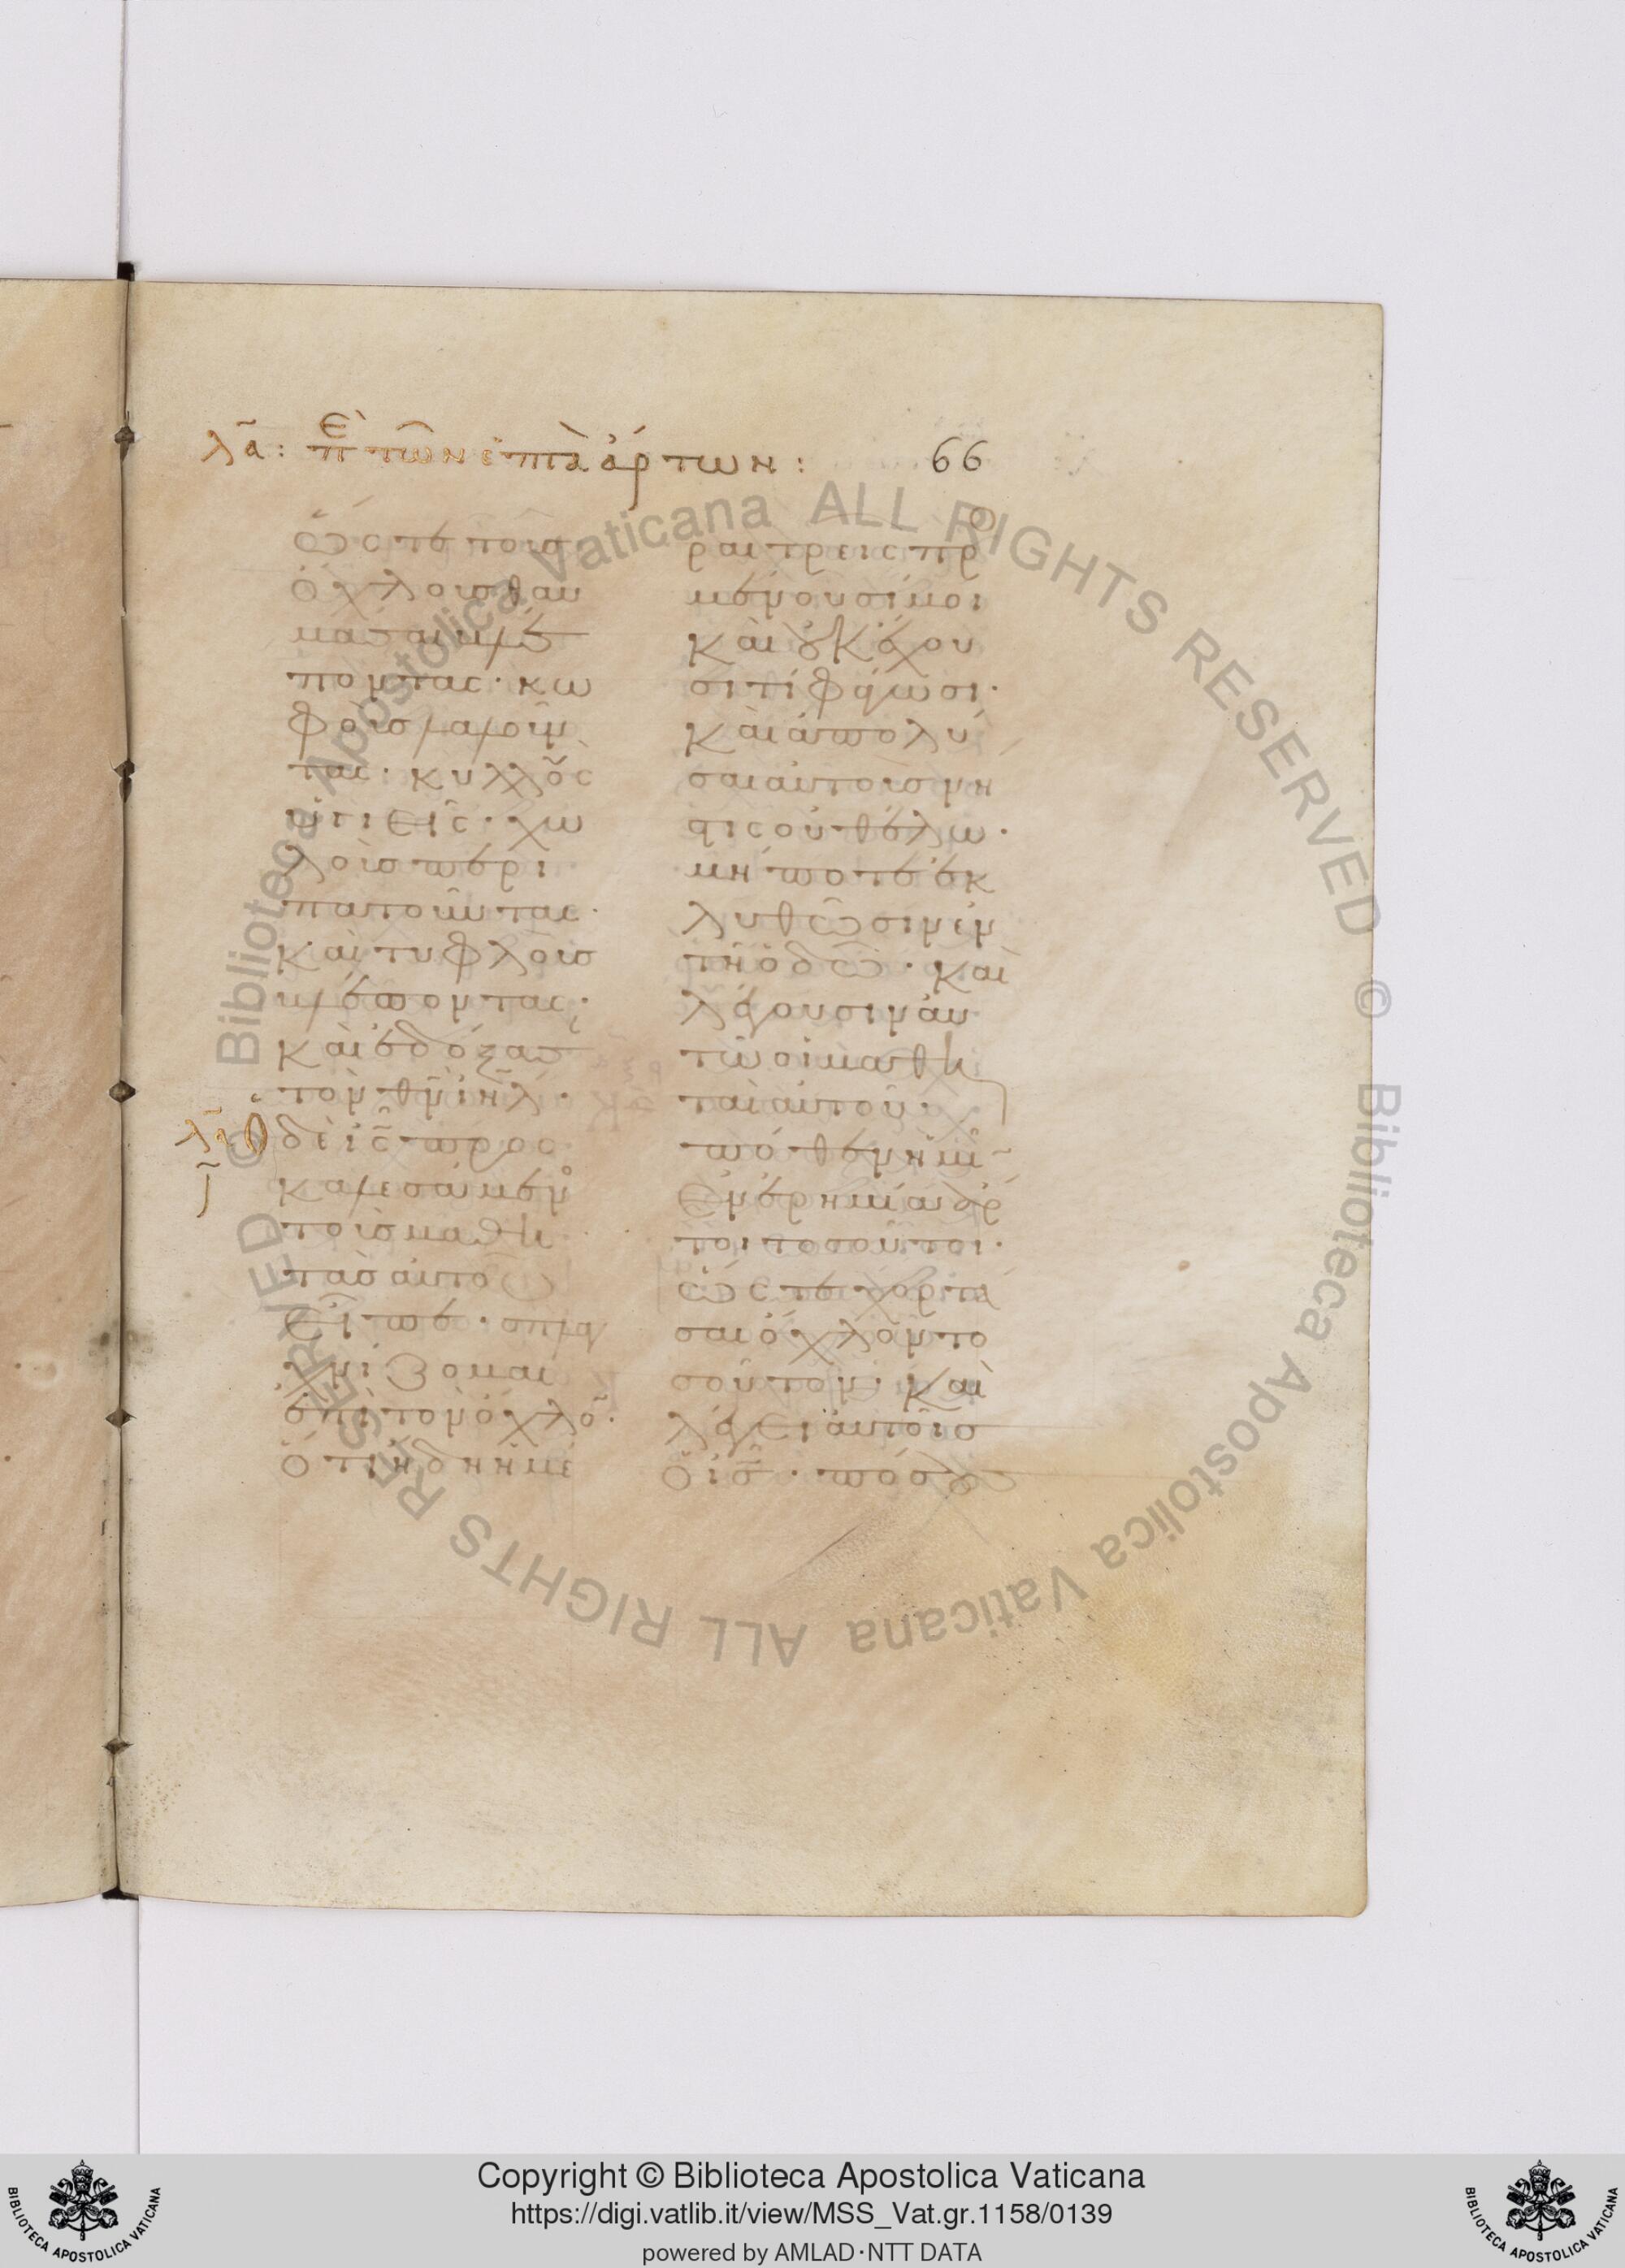 λα: Πε τῶν ἑπτὰ ἄρτων: 66
ὥστε τοὺσ
ὄχλουσ θαυ
μάσαι βλέ
ποντας· κω
φοὺσ λαλοῦν
τας· κυλλοὺς
ὑγιεῖς· χω
λοὺσ περι
πατοῦντας·
καὶ τυφλοὺσ
βλέποντας·
καὶ ἐδόξασ
τὸν θν ιηλ·
Ὁ δὲ ις προσ
καλεσάμενο
τοὺσ μαθη
τὰσ αὐτοῦ
εἶπε· σπλα
γχνίζομαι
ἐπὶ τὸν ὄχλο·
ὅτι ἤδη ἡμέ
ραι τρεῖς προ
μένουσί μοι
καὶ οὐκ ἔχου
σι τί φάγωσι·
καὶ ἀπολύ
σαι αὐτοὺσ νή
στις οὐ θέλω·
μήποτε ἐκ
λυθῶσιν ἐν
τῆ ὁδῶ· καὶ
λέγουσιν αὐ
τῶ οἱ μαθη
ταὶ αὐτοῦ·
πόθεν ἡμῖ
ἐν ἐρημία ἄρ
τοι τοσοῦτοι·
ὥστε χορτά
σαι ὄχλον το
σοῦτον· καὶ
λέγει αὐτοῖσ
ὁ ισ· πόσουσ
Copyright © Biblioteca Apostolica Vaticana
https://digi.vatlib.it/view/MSS_Vat.gr.1158/0139
powered by AMLAD·NTT DATA
BIBLIOTECA APOSTOLICA VATICANA
BIBLIOTECA APOSTOLICA VATICANA
Biblioteca Apostolica Vaticana ALL RIGHTS RESERVED ©
Biblioteca Apostolica Vaticana ALL RIGHTS RESERVED ©